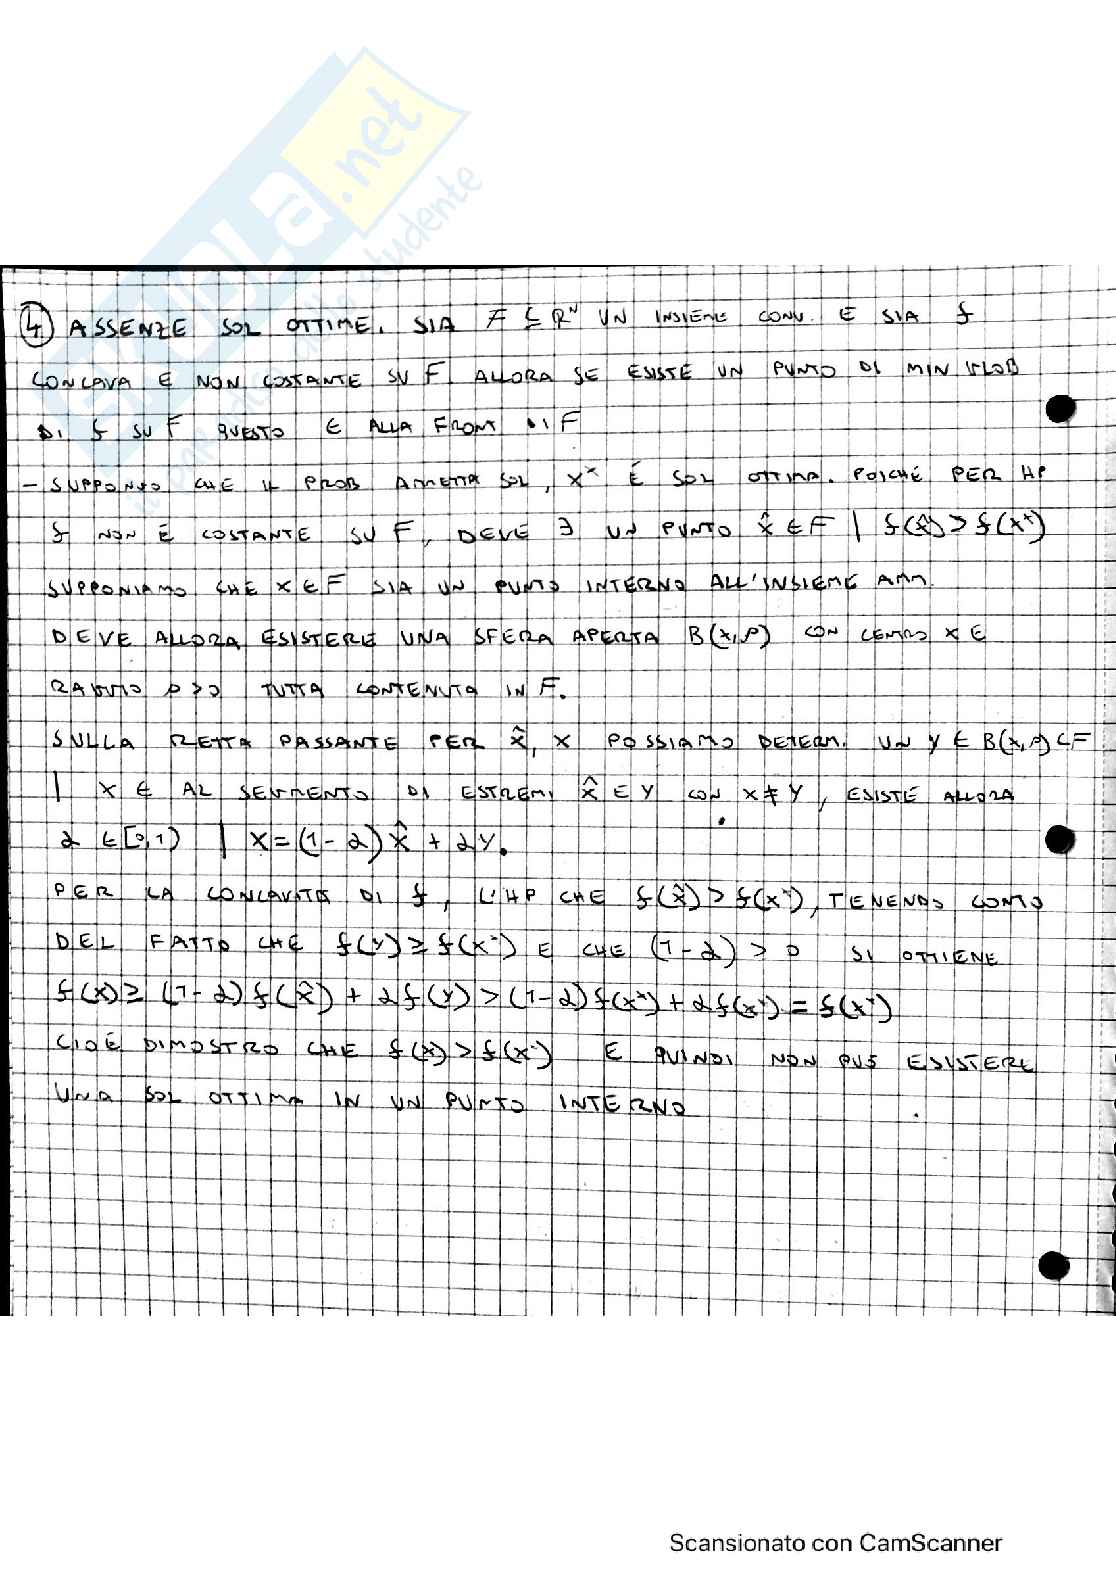 ④ ASSENZE SOL OTTIME. SIA F ⊆ Rᴺ UN INSIEME CONV. E SIA f
CONCAVA E NON COSTANTE SU F. ALLORA SE ESISTE UN PUNTO DI MIN GLOB
DI f SU F QUESTO È ALLA FRONT DI F
- SUPPONGO CHE IL PROB AMMETTA SOL, X* É SOL OTTIMA. POICHÉ PER HP
f NON É COSTANTE SU F, DEVE ∃ UN PUNTO x̂ ∈ F | f(x̂) > f(x*)
SUPPONIAMO CHE X ∈ F SIA UN PUNTO INTERNO ALL'INSIEME AMM.
DEVE ALLORA ESISTERE UNA SFERA APERTA B(x,ρ) CON CENTRO X E
RAGGIO ρ>0 TUTTA CONTENUTA IN F.
SULLA RETTA PASSANTE PER x̂, X POSSIAMO DETERM. UN Y ∈ B(x,ρ) ⊂ F
| X ∈ AL SEGMENTO DI ESTREMI x̂ E Y CON X ≠ Y, ESISTE ALLORA
α ∈ [0,1) | X = (1-α)x̂ + αy.
PER LA CONCAVITÀ DI f, L'HP CHE f(x̂) > f(x*), TENENDO CONTO
DEL FATTO CHE f(y) ≥ f(x*) E CHE (1-α) > 0 SI OTTIENE
f(x) ≥ (1-α)f(x̂) + αf(y) > (1-α)f(x*) + αf(x*) = f(x*)
CIOÈ DIMOSTRO CHE f(x) > f(x*) E QUINDI NON PUÒ ESISTERE
UNA SOL OTTIMA IN UN PUNTO INTERNO
Scansionato con CamScanner